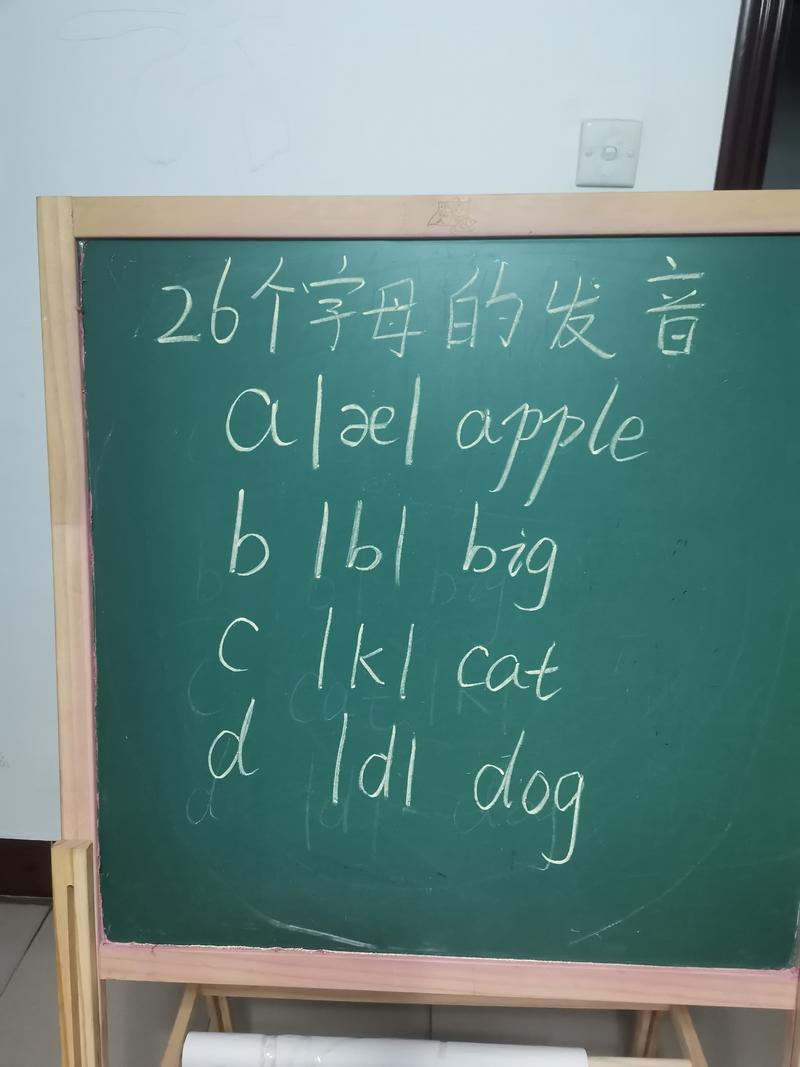 26个字母的发音
a |æ| apple
b |b| big
c |k| cat
d |d| dog